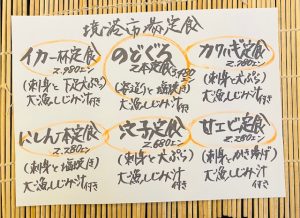 境港市場定食
イカ一杯定食
2.980エン
(刺身と下足天ぷら)
大漁しじみ汁付き
のどぐろ
2本定食
(煮付と塩焼き)
大漁しじみ汁付き
カワハギ定食
2.780エン
(刺身と天ぷら)
大漁しじみ汁付き
にしん一本定食
2.280エン
(刺身と塩焼き)
大漁しじみ汁付き
穴子定食
2.680エン
(刺身と天ぷら)
大漁しじみ汁付き
甘エビ定食
2.280エン
(刺身とかき揚げ)
大漁しじみ汁付き